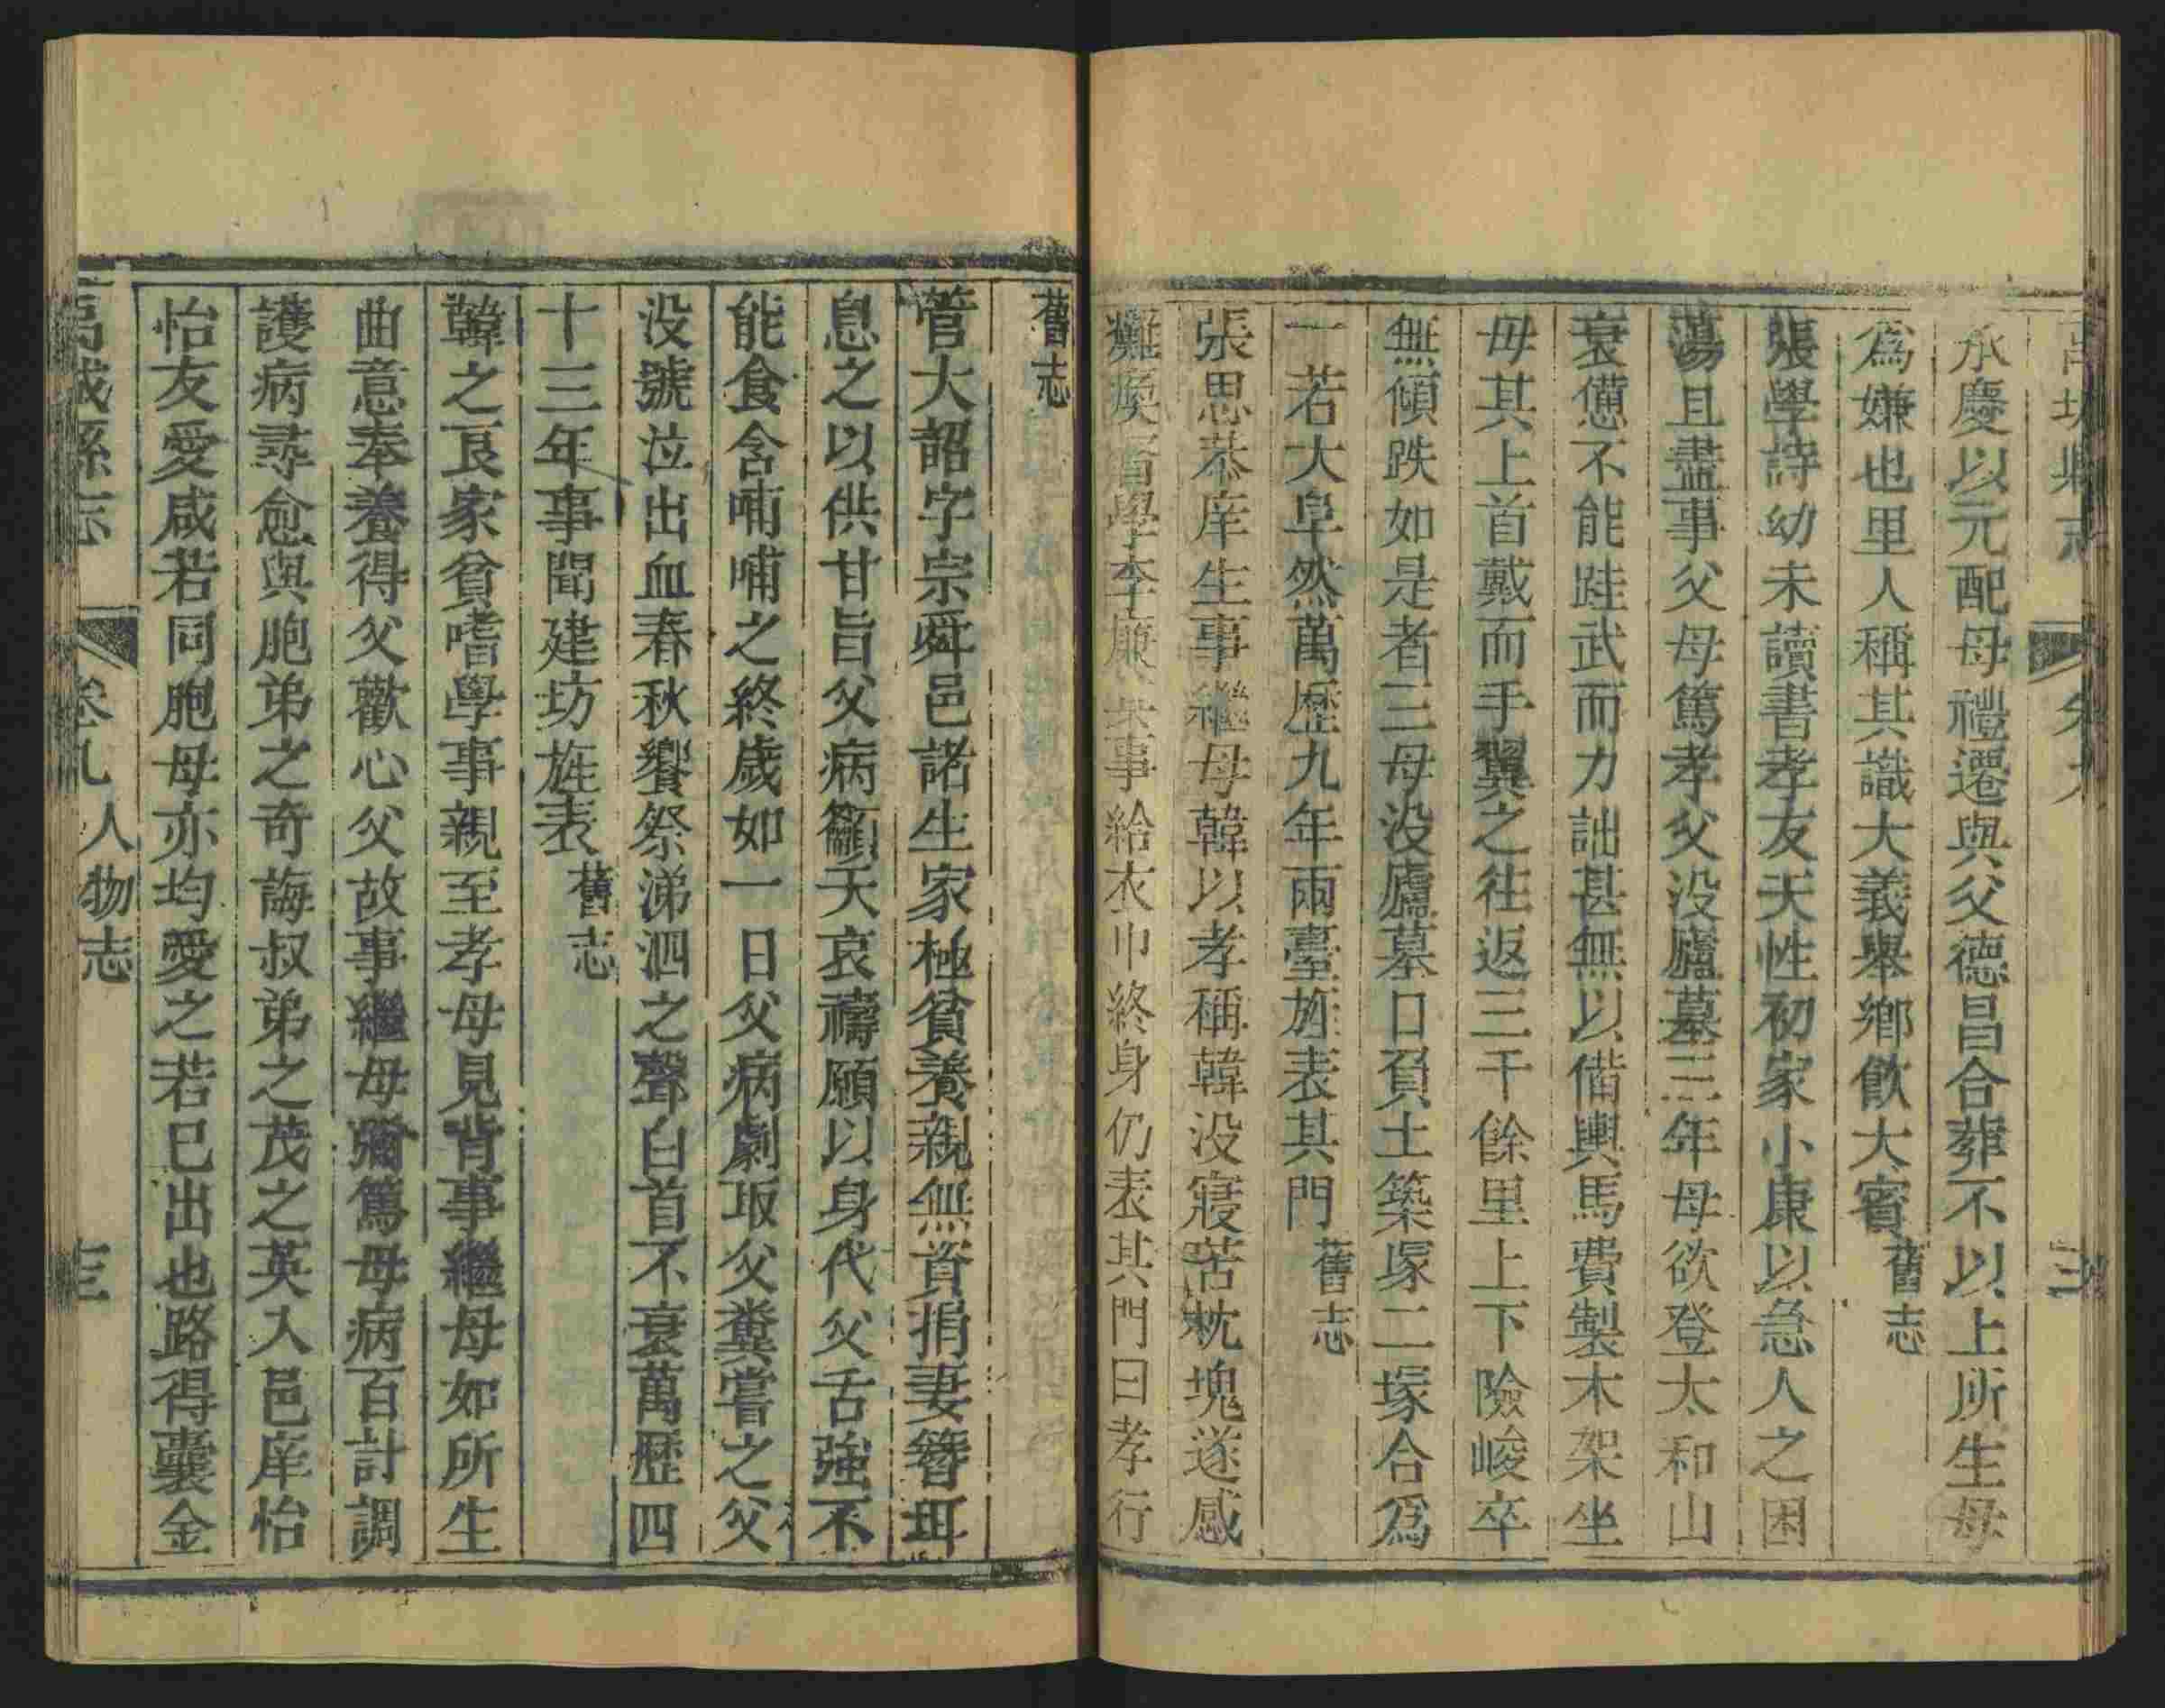 承慶以元配母禮遷與父德昌合葬不以上所生母
爲嫌也里人稱其識大義舉鄉飲大賓舊志
張學詩幼未讀書孝友天性初家小康以急人之困
蕩且盡事父母篤孝父没廬墓三年母欲登太和山
衰憊不能跬武而力詘甚無以偹輿馬費製木架坐
母其上首戴而手翼之往返三千餘里上下險峻卒
無傾跌如是者三母没廬墓口負土築塚二塚合爲
一若大阜然萬歷九年兩臺旌表其門舊志
張思恭庠生事繼母韓以孝稱韓没寢苫枕塊遂感
癱瘓督學李廉其事給衣巾終身仍表其門曰孝行
舊志
菅大韶字宗舜邑諸生家極貧養親無資捐妻簪珥
息之以供甘旨父病籲天哀禱願以身代父舌強不
能食含哺哺之終歲如一日父病劇取父糞嘗之父
没號泣出血春秋饗祭涕泗之聲白首不衰萬歷四
十三年事聞建坊旌表舊志
韓之良家貧嗜學事親至孝母見背事繼母如所生
曲意奉養得父歡心父故事繼母彌篤母病百計調
護病尋愈與胞弟之奇誨叔弟之茂之英入邑庠怡
怡友愛咸若同胞母亦均愛之若已出也路得囊金
縣志 卷九 人物志